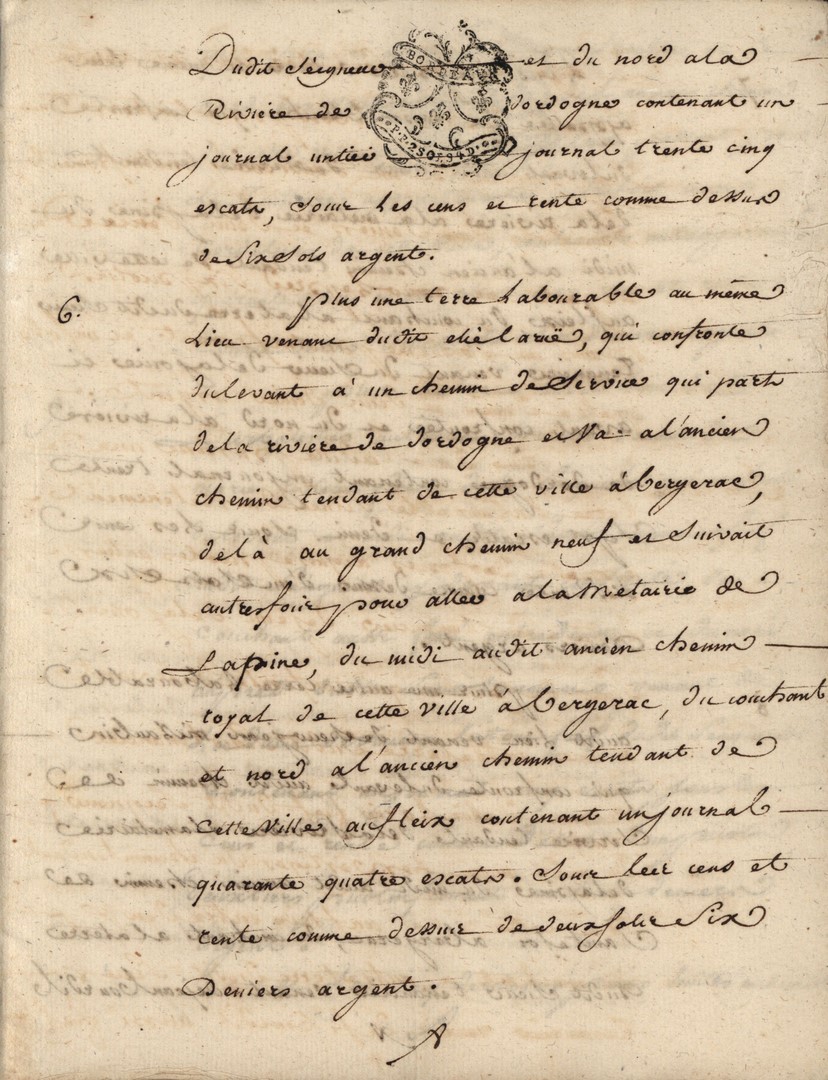 Dudit Seigneur et du nord ala
BORDEAUX
Riviére de Dordogne contenant un
journal untiers journal trente cinq
P.P. 2 SOLS 4 D.
escats, sour les cens et rente comme dessus
de Six Sols argent.
6. plus une terre Labourable au même
Lieu venant dudit elié laruë, qui confronte
dulevant à un chemin de Service qui part
dela riviére de dordogne et Va al'ancien
chemin tendant de cette ville àbergerac,
delà au grand chemin neuf et Suivait
autresfoir pour aller alametairie de
Lapine, du midi audit ancien chemin
royal de cette ville àbergerac, du couchant
et nord al'ancien chemin tendant de
Cette Ville aufleix contenant un journal
quarante quatre escats. Sour leer cens et
rente comme dessur de deux solr Six
Deniers argent.